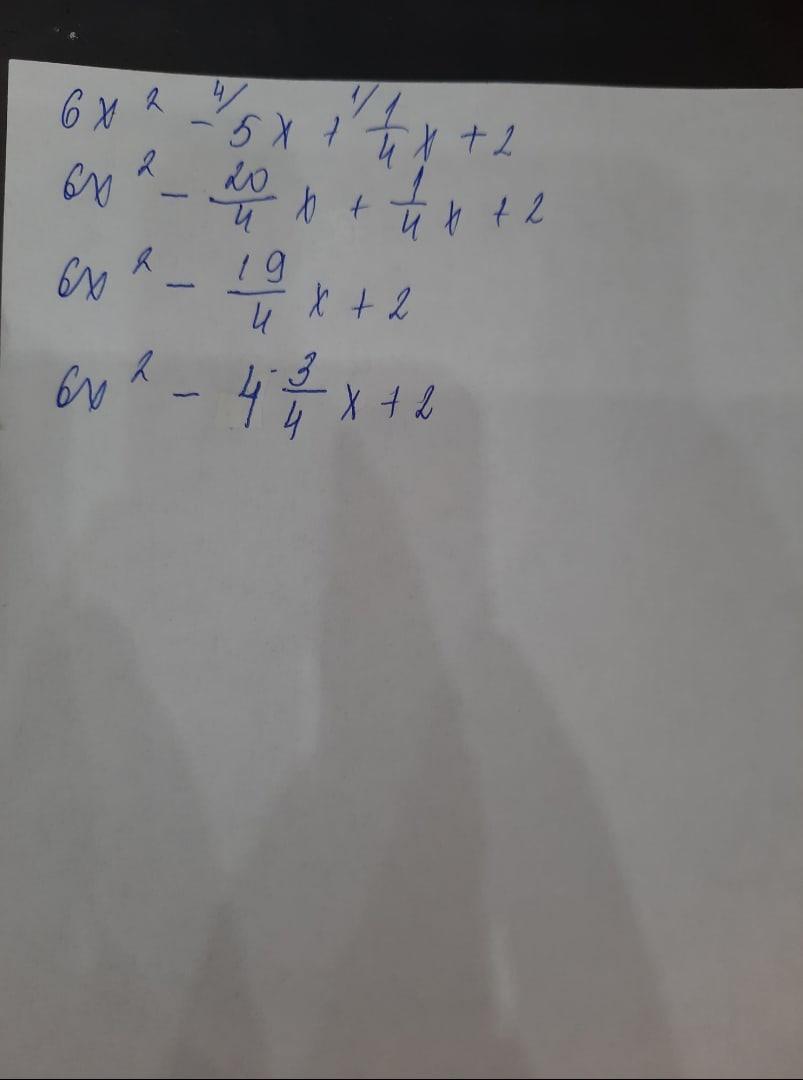 6x² - ⁴/5x + ¹/1/4x + 2
6x² - 20/4 x + 1/4 x + 2
6x² - 19/4 x + 2
6x² - 4 3/4 x + 2